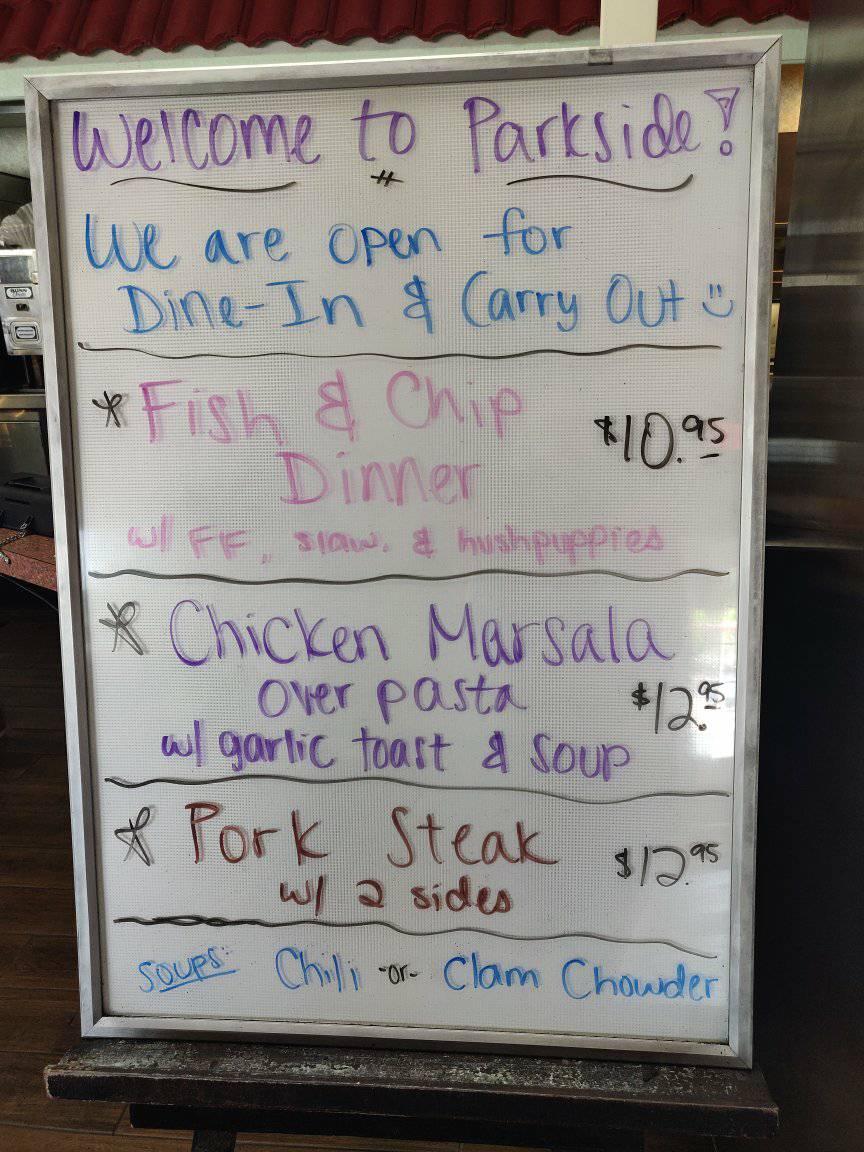 Welcome to Parkside!
We are open for
Dine-In & Carry Out
* Fish & Chip $10.95
Dinner
w/ FF, slaw, & hushpuppies
* Chicken Marsala
over pasta $12.95
w/ garlic toast & soup
* Pork Steak $12.95
w/ 2 sides
Soups: Chili -or- Clam Chowder